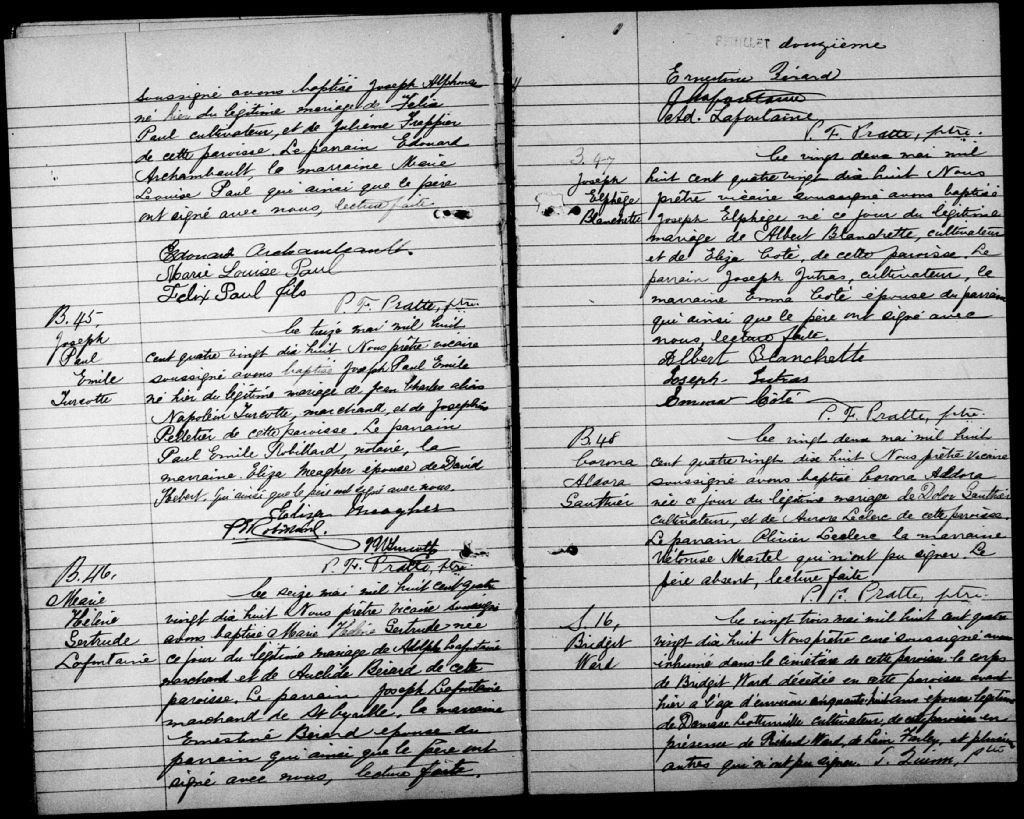 soussigné avons baptisé Joseph Alphonse
né hier du légitime mariage de Félix
Paul cultivateur, et de Julième Frappier
de cette paroisse. Le parrain Edouard
Archambault, la marraine Marie
Louise Paul qui ainsi que le père
ont signé avec nous, lecture faite.
Edouard Archambault.
Marie Louise Paul
Felix Paul fils
P. F. Pratte, ptre.
B. 45,
Joseph
Paul
Emile
Turcotte
Le treize mai mil huit
cent quatre vingt dix huit Nous prêtre vicaire
soussigné avons baptisé Joseph Paul Emile
né hier du légitime mariage de Jean Charles alias
Napoléon Turcotte, marchand, et de Josephine
Pelletier de cette paroisse. Le parrain
Paul Emile Robillard, notaire, la
marraine Eliza Meagher épouse de David
Hebert. qui ainsi que le père ont signé avec nous.
Eliza Meagher
Robillard.
P. F. Pratte, ptre.
B. 46.
Marie
Hélène
Gertrude
Lafontaine
Le seize mai mil huit cent quatre
vingt dix huit Nous prêtre vicaire soussigné
avons baptisé Marie Hélène Gertrude née
ce jour du légitime mariage de Adolphe Lafontaine
marchand et de Auclide Bérard de cette
paroisse. Le parrain Joseph Lafontaine
marchand de St Cyrille, la marraine
Ernestine Bérard épouse du
parrain qui ainsi que le père ont
signé avec nous, lecture faite.
FEUILLET douzième
Ernestine Bérard
J Lafontaine
Ad. Lafontaine
P. F. Pratte, ptre.
B. 47
Joseph
Elphège
Blanchette
Le vingt deux mai mil
huit cent quatre vingt dix huit Nous
prêtre vicaire soussigné avons baptisé
Joseph Elphège né ce jour du légitime
mariage de Albert Blanchette, cultivateur
et de Eliza Coté, de cette paroisse. Le
parrain Joseph Jutras, cultivateur, la
marraine Emma Coté épouse du parrain
qui ainsi que le père ont signé avec
nous, lecture faite.
Albert Blanchette
Joseph Jutras
Emma Côté
P. F. Pratte, ptre.
B. 48
Corona
Aldora
Gauthier
Le vingt deux mai mil huit
cent quatre vingt dix huit Nous prêtre vicaire
soussigné avons baptisé Corona Aldora
née ce jour du légitime mariage de Dolor Gauthier
cultivateur, et de Aurore Leclerc de cette paroisse.
Le parrain Olivier Leclerc la marraine
Victorise Martel qui n'ont pu signer. Le
père absent, lecture faite.
P. F. Pratte, ptre.
S. 16,
Bridget
Ward
Le vingt trois mai mil huit cent quatre
vingt dix huit Nous prêtre curé soussigné avons
inhumé dans le cimetière de cette paroisse le corps
de Bridget Ward décédée en cette paroisse avant
hier à l'âge d'environ cinquante huit ans épouse légitime
de Damase cultivateur, de cette paroisse en
présence de Richard Ward, de Léon et plusieurs
autres qui n'ont pu signer.